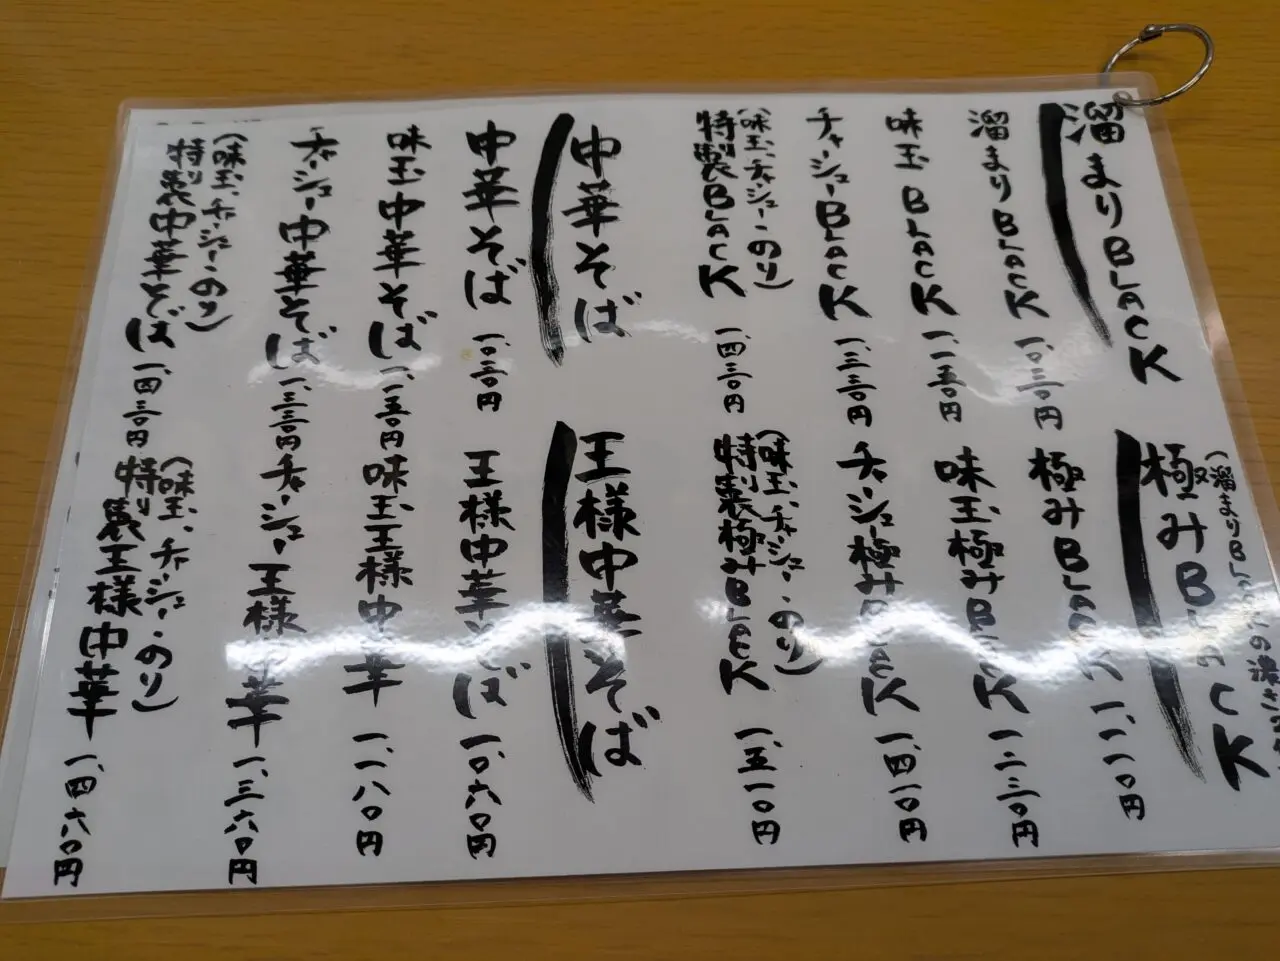 溜まりBLACK
溜まりBLACK 一、〇三〇円
味玉BLACK 一、一五〇円
チャーシューBLACK 一、三三〇円
(味玉、チャーシュー・のり)
特製BLACK 一、四三〇円
(溜まりBLACKの濃さ
極みBLACK
極みBLACK 一、一一〇円
味玉極みBLACK 一、二三〇円
チャーシュー極みBLACK 一、四一〇円
(味玉、チャーシュー・のり)
特製極みBLACK 一、五一〇円
中華そば
中華そば 一、〇三〇円
味玉中華そば 一、一五〇円
チャーシュー中華そば 一、三三〇円
(味玉、チャーシュー・のり)
特製中華そば 一、四三〇円
王様中華そば
王様中華そば 一、〇六〇円
味玉王様中華 一、一八〇円
チャーシュー王様中華 一、三六〇円
(味玉、チャーシュー・のり)
特製王様中華 一、四六〇円